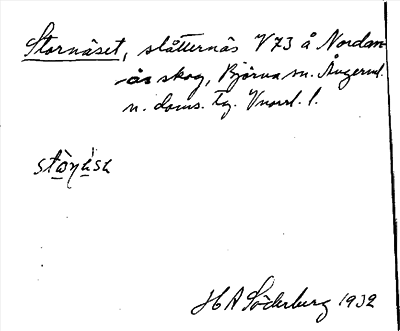 Stornäset, slåtternäs V73 å Nordan-
ås skog, Björna sn. Ångerml.
n. doms. tg. Vnorrl. l.
HA Söderberg 1932